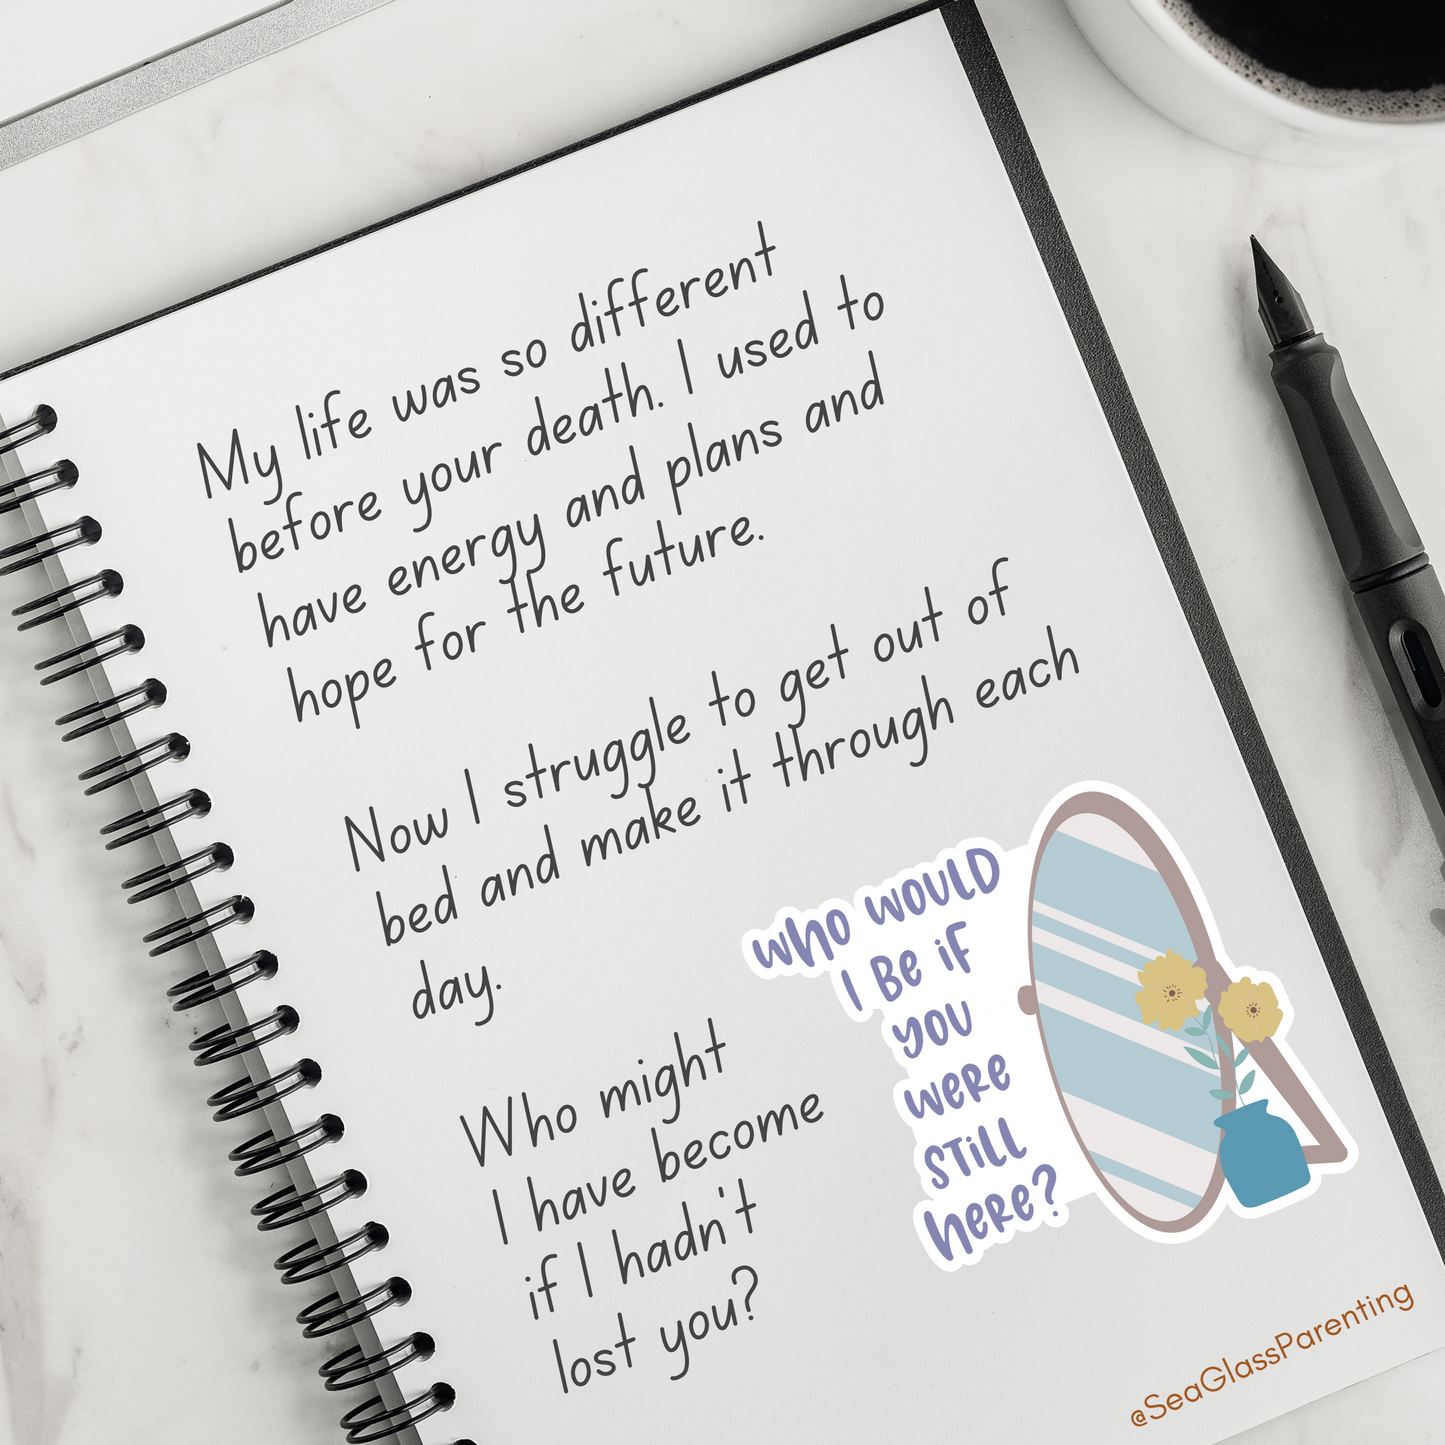 My life was so different
before your death. I used to
have energy and plans and
hope for the future.
Now I struggle to get out of
bed and make it through each
day.
Who might
I have become
if I hadn't
lost you?
WHO WOULD
I BE iF
YOU
WERE
STiLL
HERE?
@SeaGlassParenting